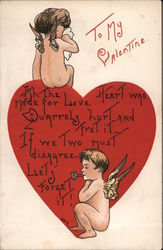 To My
Valentine.
Ah The Heart was
made for Love,
Quarrels hurt and
fret it—
If we Two must
disagree
Let's
forget
it!